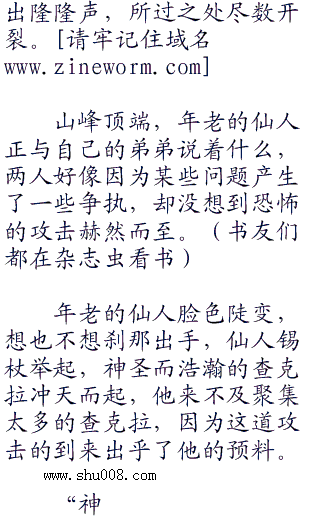 出隆隆声，所过之处尽数开
裂。[请牢记住域名
www.zineworm.com]
山峰顶端，年老的仙人
正与自己的弟弟说着什么，
两人好像因为某些问题产生
了一些争执，却没想到恐怖
的攻击赫然而至。（书友们
都在杂志虫看书）
年老的仙人脸色陡变，
想也不想刹那出手，仙人锡
杖举起，神圣而浩瀚的查克
拉冲天而起，他来不及聚集
太多的查克拉，因为这道攻
击的到来出乎了他的预料。
www.shu008.com
“神